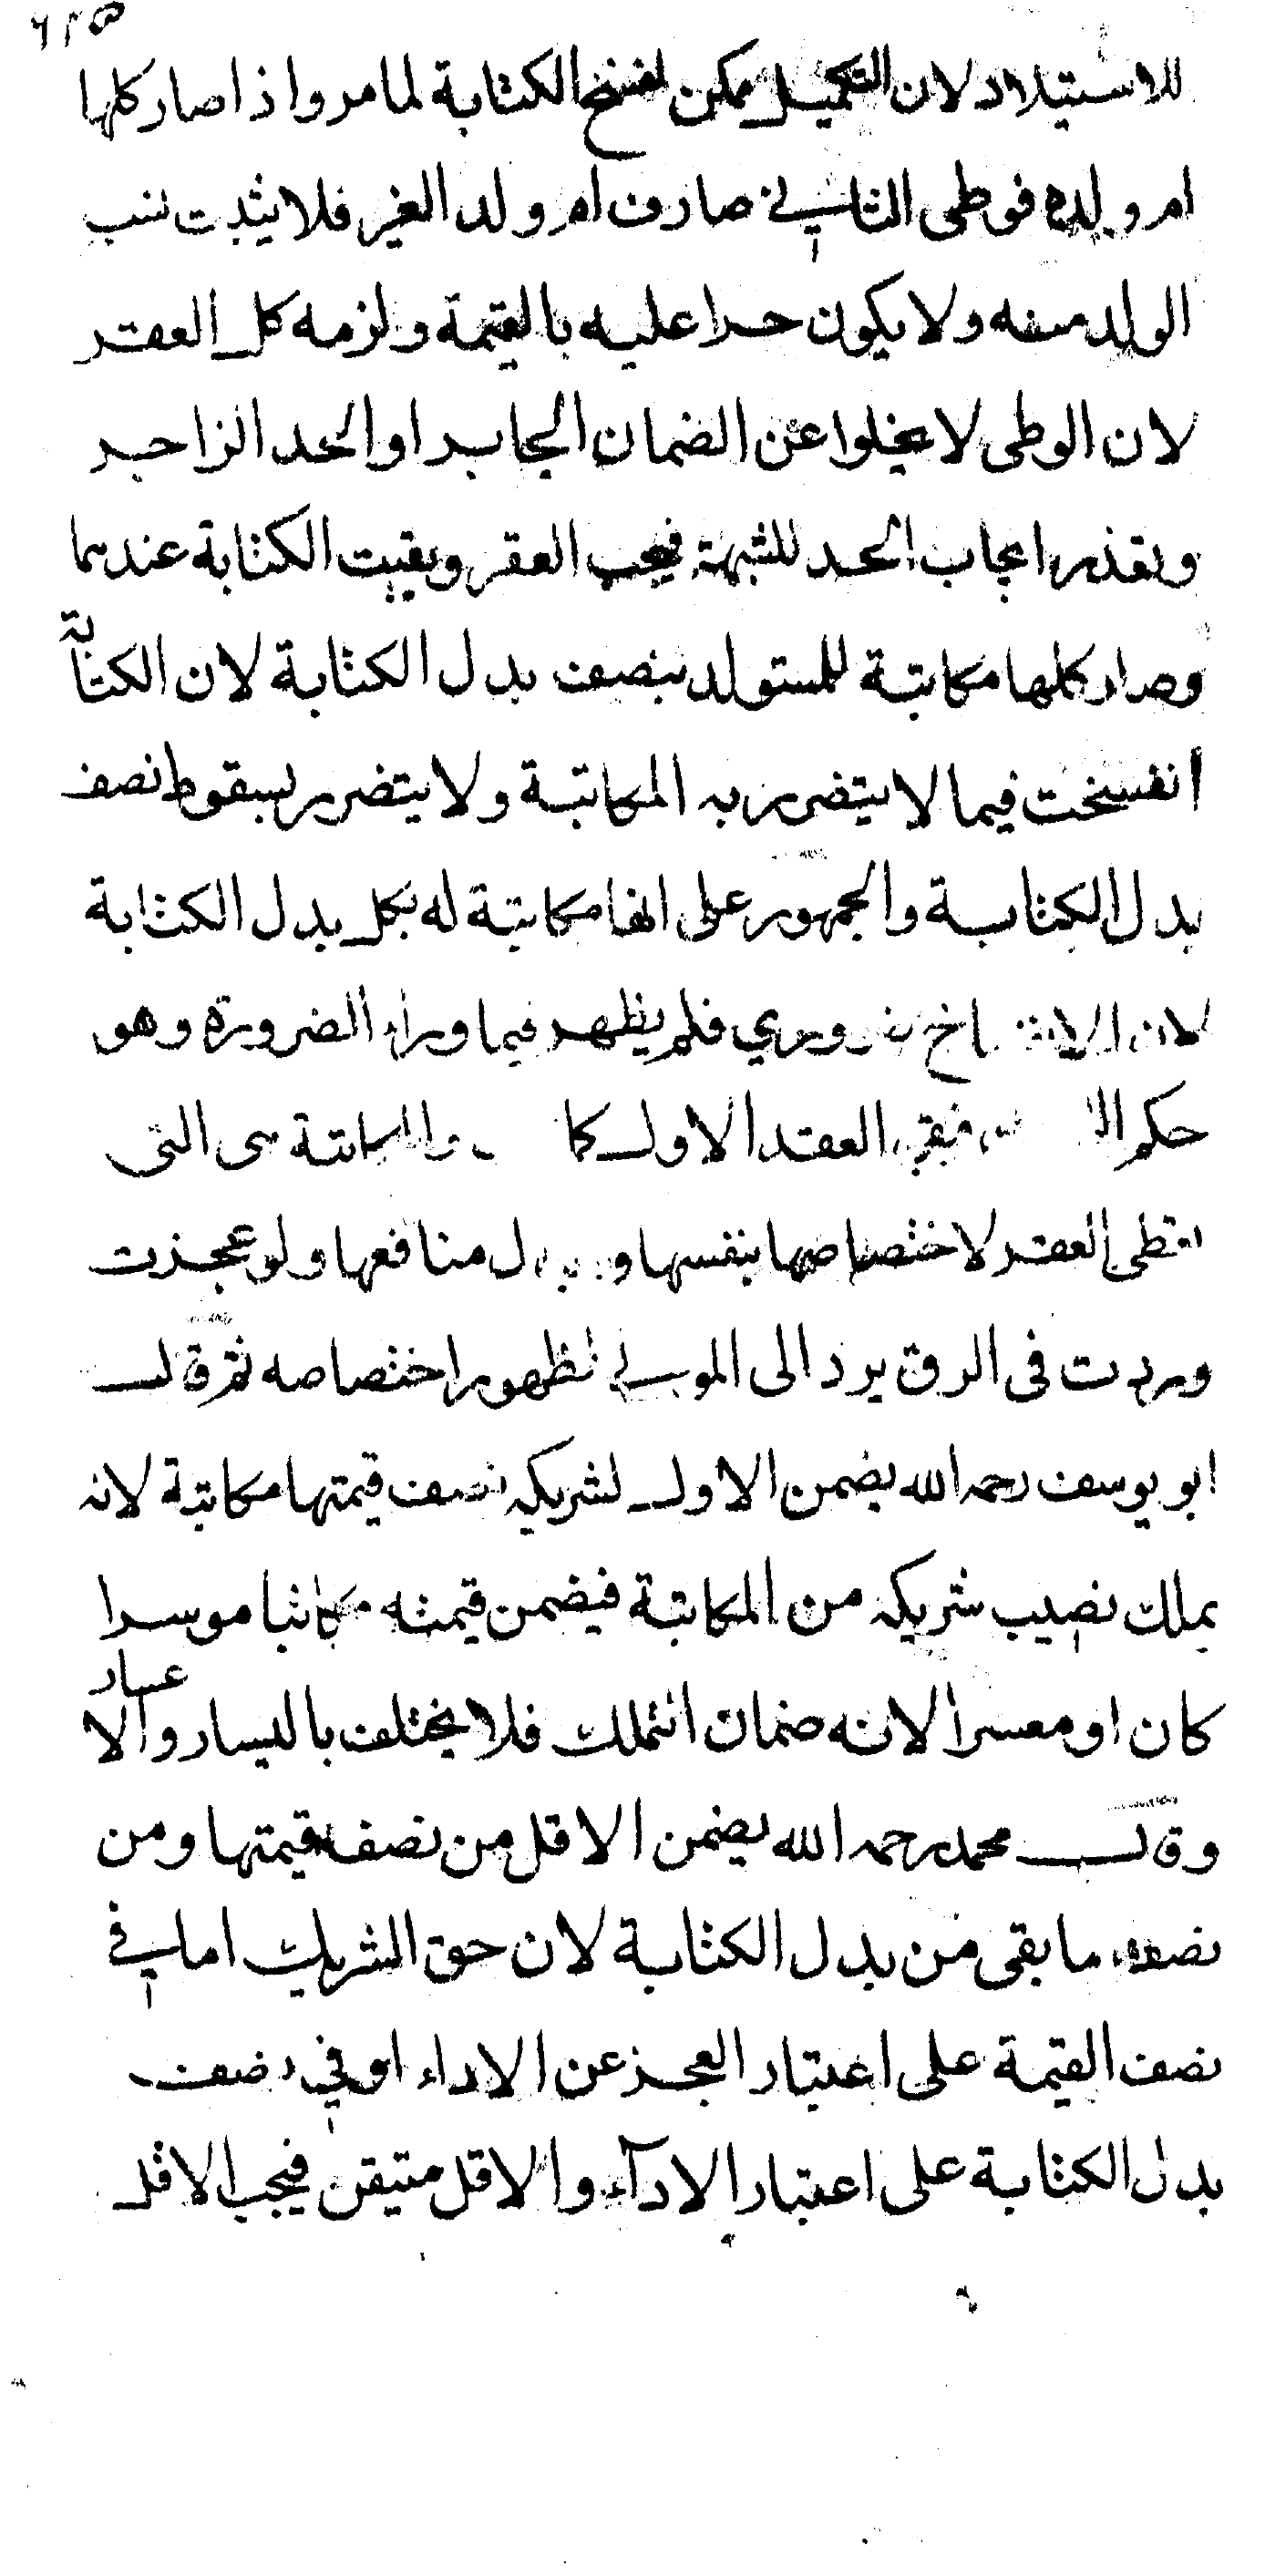 ٦٢٥
للاستيلاد لان التكميل ممكن لفسخ الكتابة لما مر واذا صار كلها
ام ولده فوطى الثاني صادف ام ولد الغير فلا يثبت نسب
الولد منه ولا يكون حرا عليه بالقيمة ولزمه كل العقر
لان الوطى لا يخلوا عن الضمان الجابر او الحد الزاجر
وتعذر ايجاب الحد للشبهة فيجب العقر وبقيت الكتابة عندهما
وصار كلها مكاتبة للمستولد بنصف بدل الكتابة لان الكتابة
انفسخت فيما لا يتضرر به المكاتبة ولا يتضرر بسقوط نصف
بدل الكتابة والجمهور على انها مكاتبة له بكل بدل الكتابة
لان الانفساخ ضروري فلم يظهر فيما وراء الضرورة وهو
حكم العقد الاول كما والمكاتبة هى التى
تعطى العقر لاختصاصها بنفسها و منافعها ولو عجزت
وردت فى الرق يرد الى المولى لظهور اختصاصه ثم قال
ابو يوسف رحمه الله يضمن الاول لشريكه نصف قيمتها مكاتبة لانه
يملك نصيب شريكه من المكاتبة فيضمن قيمته مكاتبا موسرا
كان او معسرا لانه ضمان التملك فلا يختلف باليسار والاعسار
وقال محمد رحمه الله يضمن الاقل من نصف قيمتها ومن
نصف ما بقى من بدل الكتابة لان حق الشريك اما في
نصف القيمة على اعتبار العجز عن الاداء او في نصف
بدل الكتابة على اعتبار الادآء والاقل متيقن فيجب الاقل